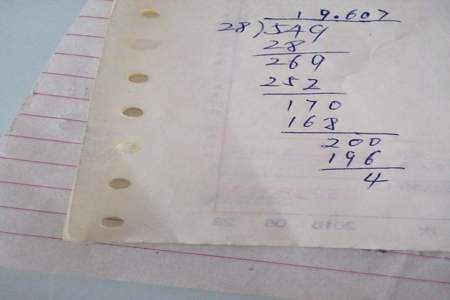 19.607
28)549
28
269
252
170
168
200
196
4